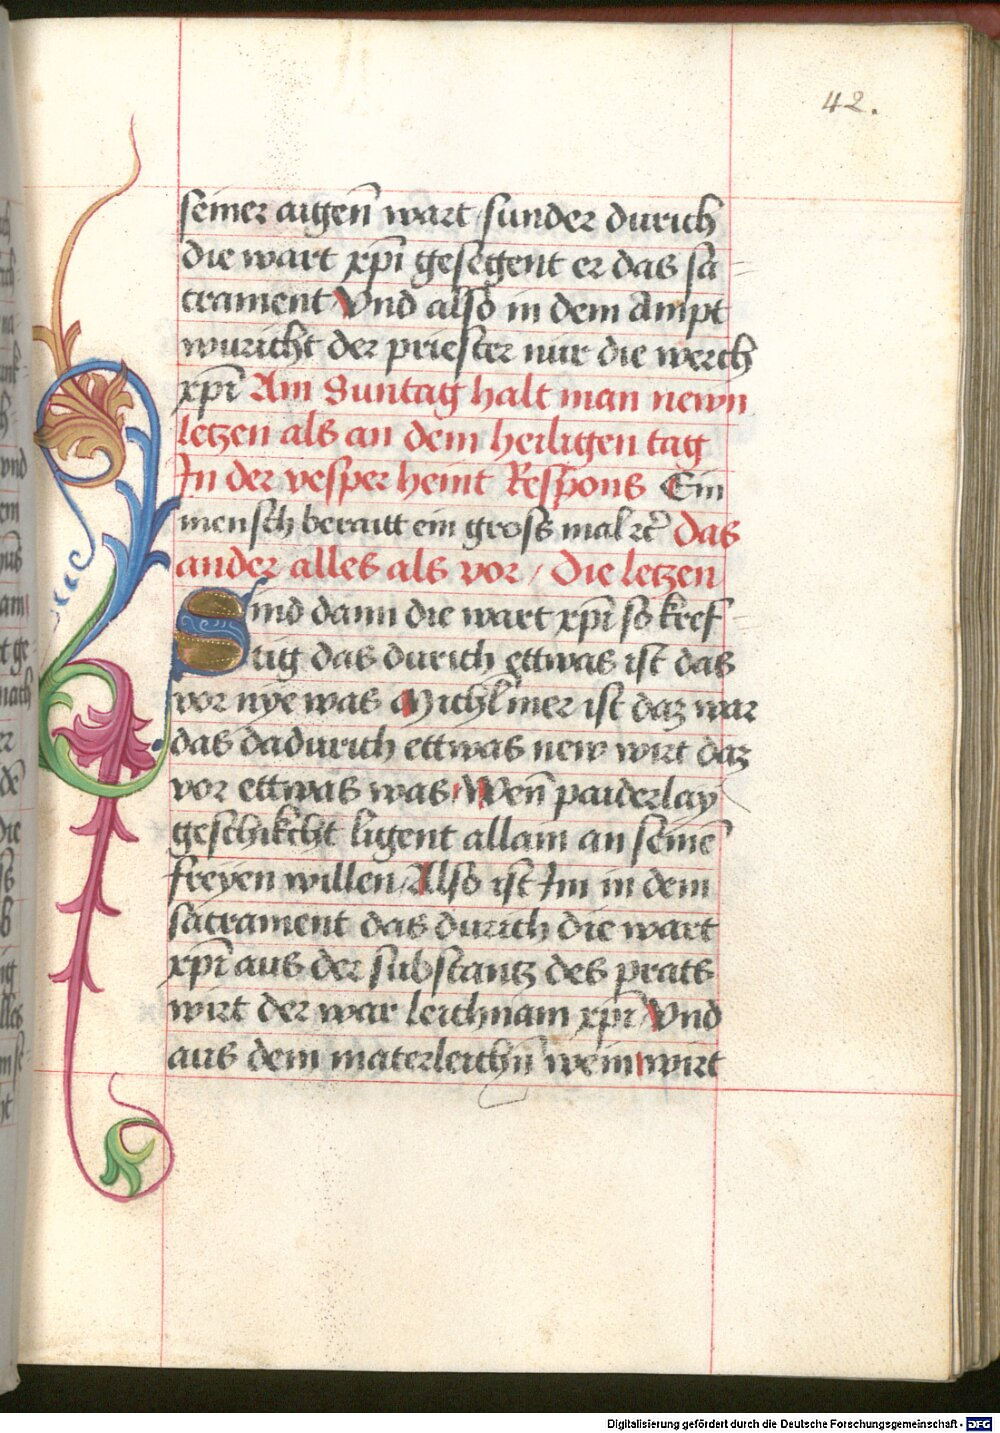 42.
seiner aigen̄ wart / sunder durich
die wart xp̄i gesegent er das sa=
crament Vnd also in dem Ampt
wuricht der priester nur die werch
xp̄i Am Suntag halt man newn
letzen als an dem heiligen tag
In der vesper heint Respons Ein
mensch beraitt ein gross mal ꝛc̄ das
ander alles als vor / Die letzen
Sind dann die wart xp̄i so kref=
tig das durich ettwas ist das
vor nye was Michl̄mer ist daz war
das dadurich ettwas new wirt daz
vor ettwas was / Wen̄ paiderlay
geschikcht ligent allain an seinē
freyen willen / Also ist Im in dem
sacrament das durich die wart
xp̄i aus der substantz des prats
wirt der war leichnam xp̄i Vnd
aus dem materleichn̄ wein wirt
Digitalisierung gefördert durch die Deutsche Forschungsgemeinschaft - DFG